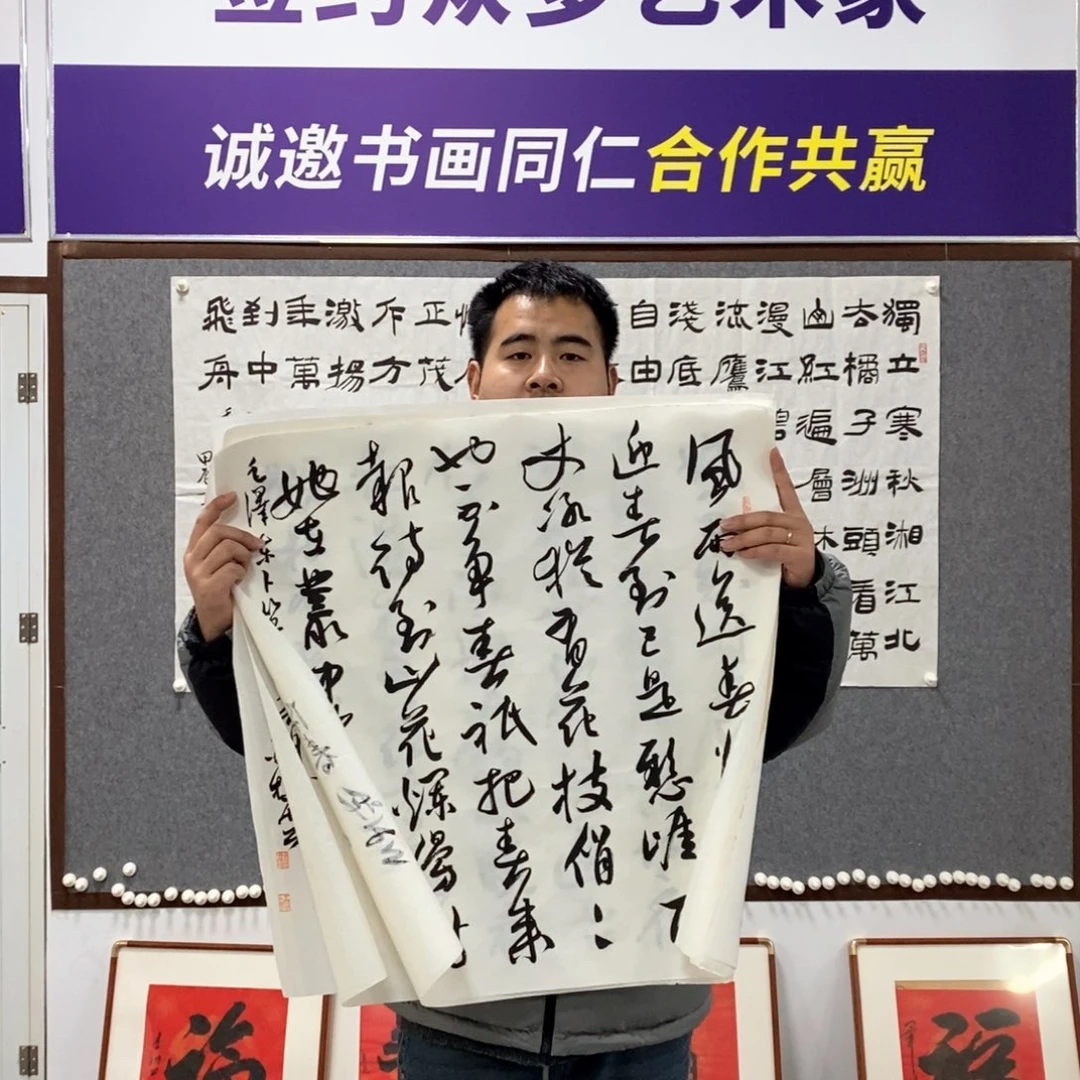 签约众多艺术家
诚邀书画同仁合作共赢
獨立寒秋湘江北
去橘子洲頭看萬
山紅遍層
漫江碧
流鷹
淺底
自由
正茂
斥方
激揚
年萬
到中
飛舟
風雨送春
迎春到已是懸崖
丈冰猶有花枝俏〻
也不爭春祇把春來
報待到山花爛漫
她在叢中
毛澤東卜算